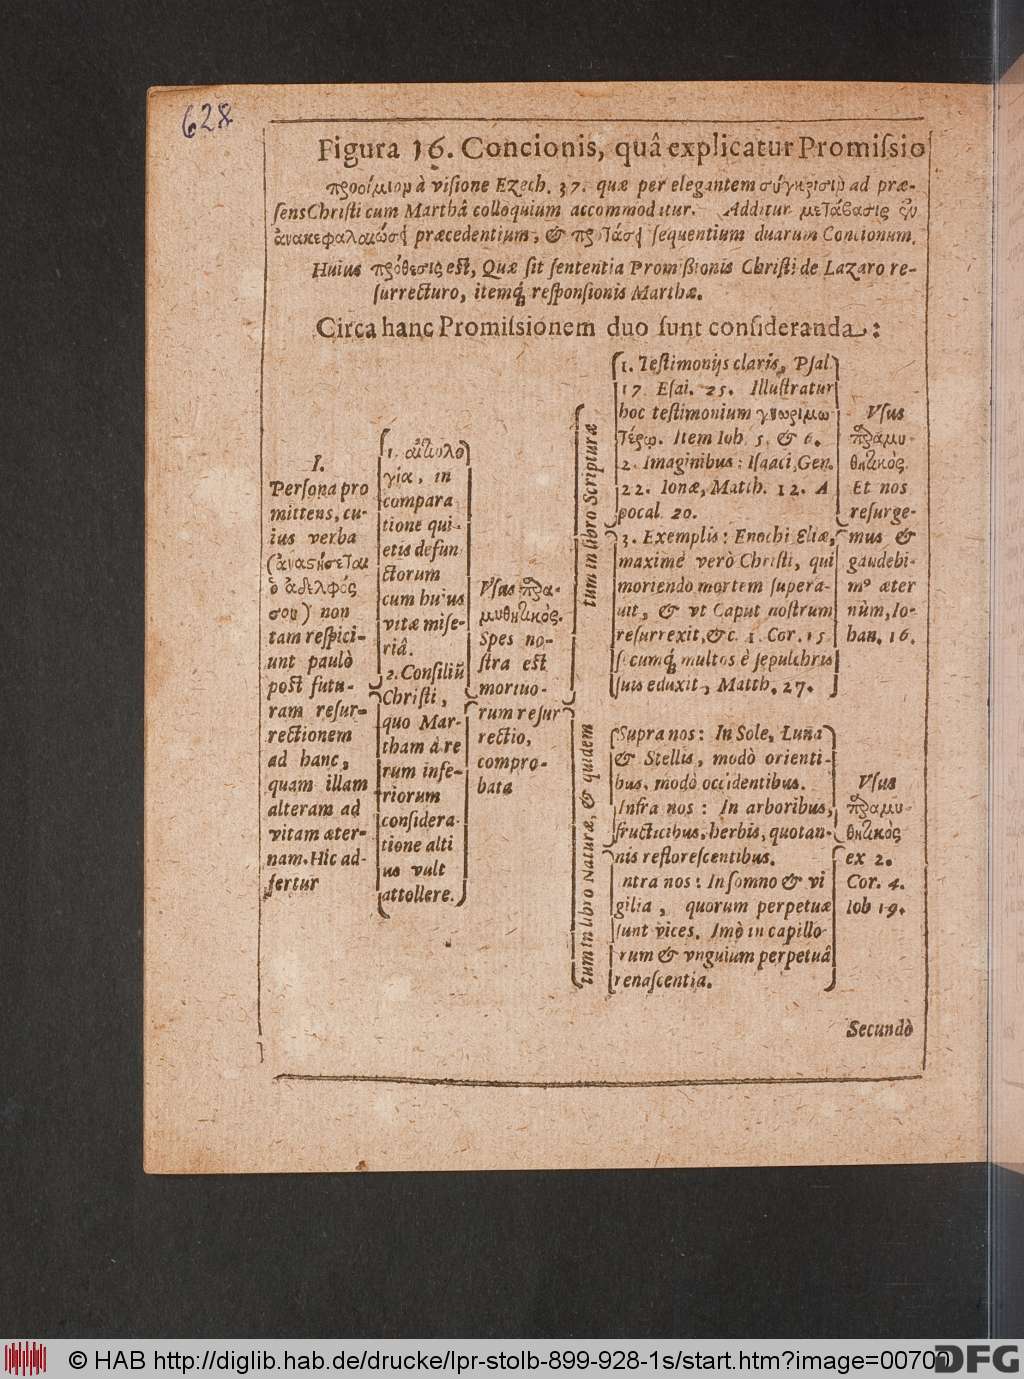 628
Figura 16. Concionis, quâ explicatur Promiſsio
προοίμιον à viſione Ezech. 37. quæ per elegantem σύγκρισιν ad præ-
ſens Chriſti cum Marthâ colloquium accommodatur. Additur μετάβασις ἐν
ἀνακεφαλαιώσει præcedentium, & προτάσει ſequentium duarum Concionum.
Huius πρόθεσις eſt, Quæ ſit ſententia Promiſsionis Chriſti de Lazaro re-
ſurrecturo, itemq́; reſponſionis Marthæ.
Circa hanc Promiſsionem duo ſunt conſideranda:
I.
Perſona pro
mittens, cu-
ius verba
(ἀναστήσεται
ὁ ἀδελφός
σου) non
tam reſpici-
unt paulò
poſt futu-
ram reſur-
rectionem
ad hanc,
quam illam
alteram ad
vitam æter-
nam. Hic ad-
fertur
1. αἰτιολο
γία, in
compara
tione qui-
etis defun
ctorum
cum huius
vitæ miſe-
riâ.
2. Conſiliũ
Chriſti,
quo Mar-
tham à re
rum infe-
riorum
conſidera-
tione alti
us vult
attollere.
Vſus παρα-
μυθητικὸς.
Spes no-
ſtra eſt
mortuo-
rum reſur
rectio,
compro-
bata
tum in libro Scripturæ
1. Teſtimonijs claris, Pſal
17. Eſai. 25. Illuſtratur
hoc teſtimonium γνωριμω
τέρῳ. Item Iob. 5. & 6.
2. Imaginibus: Iſaaci, Gen.
22. Ionæ, Matth. 12. A
pocal. 20.
3. Exemplis: Enochi Eliæ,
maximè verò Chriſti, qui
moriendo mortem ſupera-
uit, & vt Caput noſtrum
reſurrexit, &c. 1. Cor. 15.
ſecumq́; multos è ſepulchris
ſuis eduxit, Matth. 27.
Vſus
παραμυ-
θητικὸς.
Et nos
reſurge-
mus &
gaudebi-
mꝰ æter
nùm, Io-
han. 16.
tum in libro Naturæ, & quidem
Supra nos: In Sole, Luna
& Stellis, modò orienti-
bus, modò occidentibus.
Infra nos: In arboribus,
fructicibus, herbis, quotan-
nis refloreſcentibus.
ntra nos: In ſomno & vi
gilia, quorum perpetuæ
ſunt vices. Imò in capillo-
rum & vnguium perpetuâ
renaſcentia.
Vſus
παραμυ-
θητικὸς
ex 2.
Cor. 4.
Iob 19.
Secundò
© HAB http://diglib.hab.de/drucke/lpr-stolb-899-928-1s/start.htm?image=00700
DFG